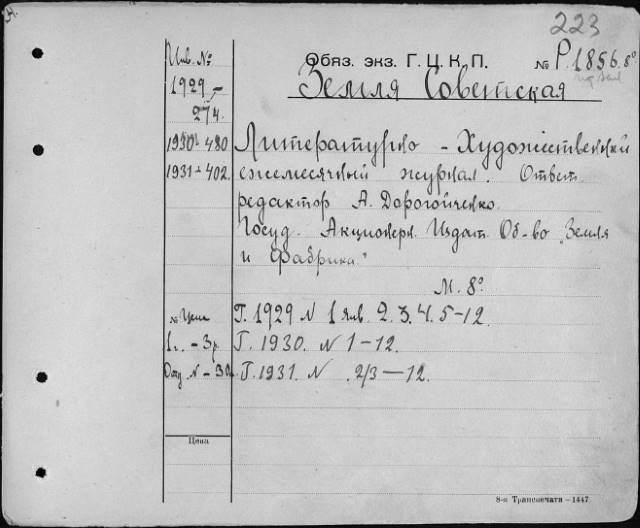 223
Инв. № Обяз. экз. Г. Ц. К. П. № Р.1856. 8º
1929,- Земля Советская
274.
1930- 480 Литературно - Художественный
1931- 402. ежемесячный журнал. Ответ.
редактор А. Дорогойченко.
Госуд. Акционерн. Издат. Об-во „Земля
и Фабрика"
М. 8º
№ Цена Г. 1929 N 1 янв. 2. 3. 4. 5-12.
1 г. - 3 р. Г. 1930. N 1-12.
Отд. N - 30к. Г. 1931. N 2/3-12.
Цена
8-я Транспечати - 1447.